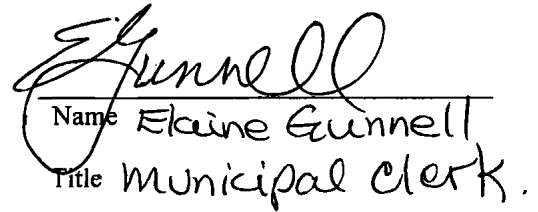 EGunnell
Name Elaine Gunnell
Title Municipal Clerk.